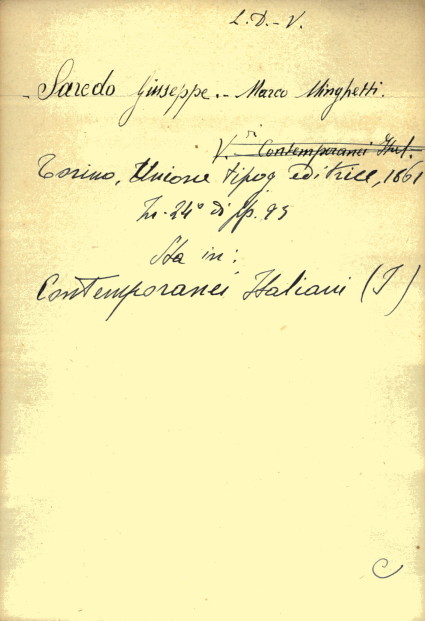 L. D. - V.
- Saredo Giuseppe. - Marco Minghetti.
V. - Contemporanei Ital.
Torino, Unione tipog editrice, 1861
In-24° di pp. 95
Sta in:
Contemporanei Italiani (I)
C